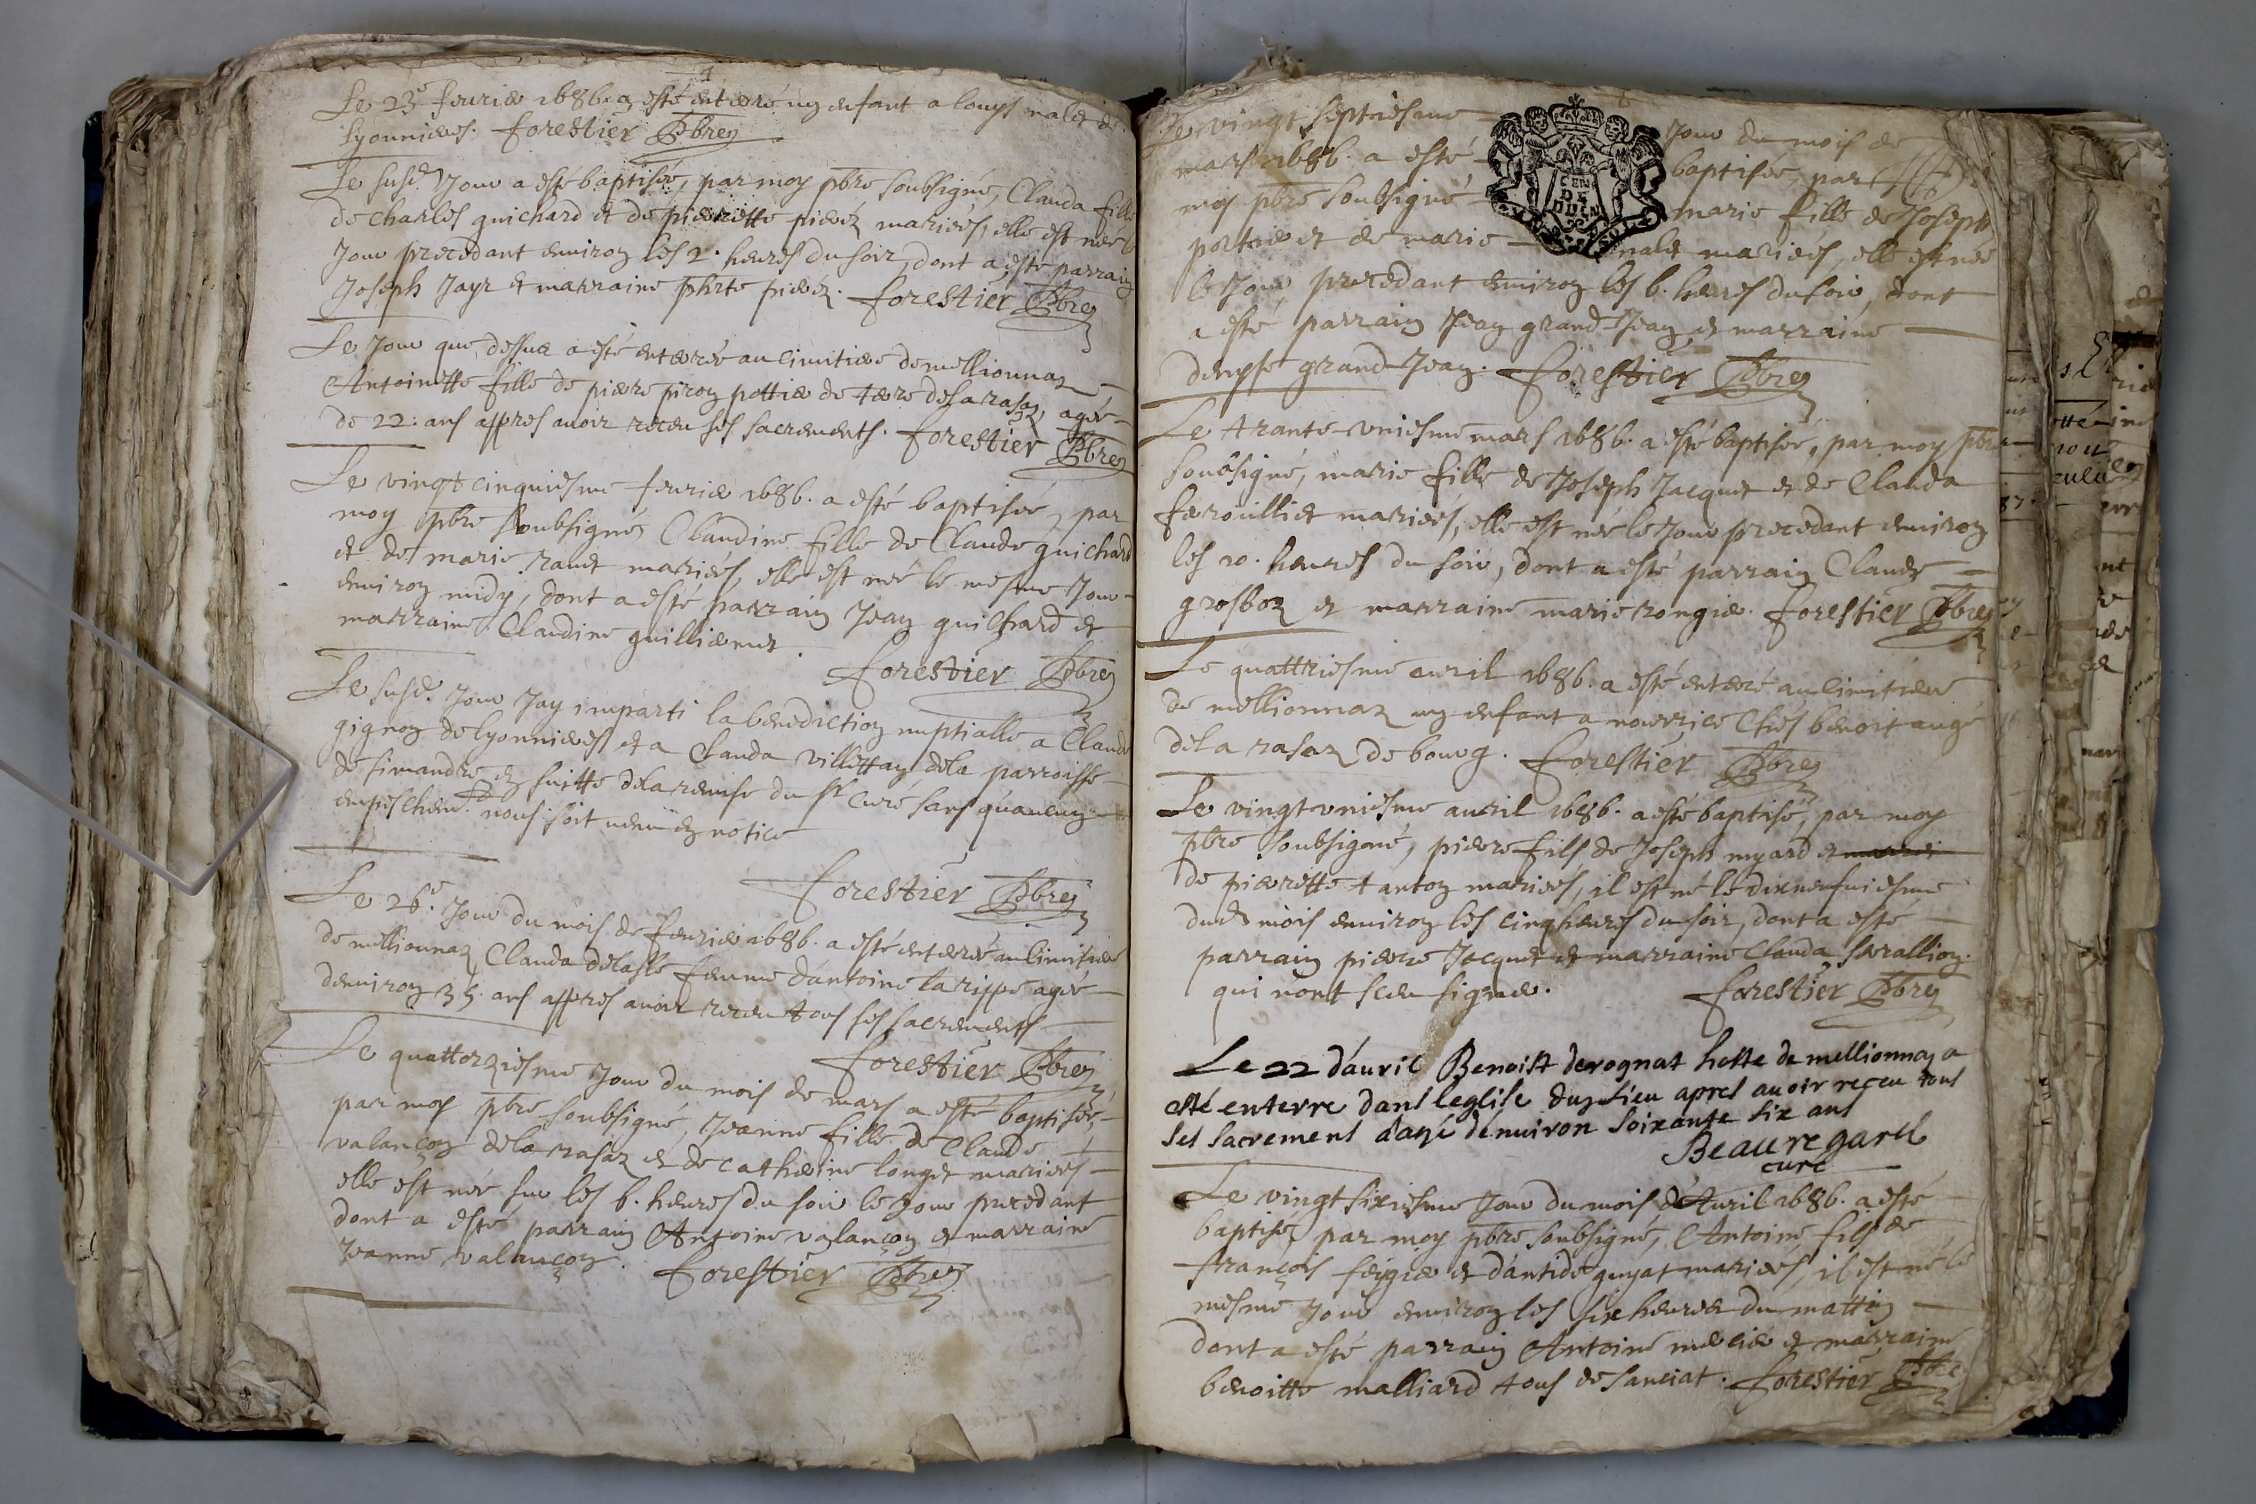 Le 23e feurier 1686. a esté enterré ung enfant a louys nalet de
lyonnieres. forestier Pbre
Le susd. Jour a esté baptisée, par moy pbre soubsigné, Clauda fille
de Charles guichard et de pierrette pierrez mariées, elle est née le
Jour precedant enuiron les 2. heures du soir, dont a esté parrain
Joseph Jayr et marraine phrte forestier Pbre
Le Jour que dessus a esté enterrée au cimitiere de mellionnaz
Antoinette fille de pierre piron pottier de terre de la rasaz, agée
de 22: ans appres auoir receu ses sacrements. forestier Pbre
Le vingt cinquiesme feurier 1686. a esté baptisée, par
moy pbre soubsigné, Claudine fille de Claude guichard
et de marie mariées, elle est née le mesme Jour
enuiron midy, dont a esté parrain Jean guichard et
marraine Claudine guilliermet.
forestier Pbre
Le susd. Jour Jay imparti la benediction nuptialle a Claude
gignon de lyonnieres et a Clauda villettan de la parroisse
de simandre en suitte de la remise du sr curé sans qu'aucung
empeschemt. nous soit uenu en notice
forestier Pbre
Le 26e. Jour du mois de feurier 1686. a esté enterrée au cimitiere
de mellionnaz Clauda femme dantoine larippe agée
denuiron 35. ans appres auoir receu tous ses sacrements
forestier Pbre
Le quattorziesme Jour du mois de mars a esté baptisée,
par moy pbre soubsigné, Jeanne fille de Claude
valançon de la rasaz et de catherine longet mariées
elle est née sur les 6. heures du soir le Jour precedant
dont a esté parrain Antoine valançon et marraine
Jeanne valançon. forestier Pbre
Le vingt septiesme Jour du mois de
mars 1686. a esté baptisée, par
moy pbre soubsigné marie fille de Joseph
portier et de marie nalet mariées, elle est née
le Jour precedant enuiron les 6. heures du soir, dont
a esté parrain Jean grand Jean et marraine
denyse grand Jean. forestier Pbre
CEN
DE
DU
Le trante-uniesme mars 1686. a esté baptisée, par moy pbre
soubsigné, marie fille de Joseph Jacquet et de Clauda
ferouilliet mariées, elle est née le Jour precedant enuiron
les 10. heures du soir, dont a esté parrain Claude
grosbon et marraine marie rongier. forestier Pbre
Le quattriesme auril 1686. a esté enterré au cimitiere
de mellionnaz ung enfant a nourrice chés benoit augé
de la rasaz de bourg. forestier Pbre
Le vingt uniesme auril 1686. a esté baptisé, par moy
pbre soubsigné, pierre fils de Joseph myard et
de pierrette tanton mariées, il est né le dixneufuiesme
dud. mois enuiron les cinq heures du soir, dont a esté
parrain pierre Jacquet et marraine Clauda serallion.
qui nont sceu signer. forestier Pbre
Le 22 dauril Benoist derognat hoste de mellionnaz a
esté enterre dans leglise dud. lieu apres auoir receu tous
ses sacrement d'agé denuiron soixante six ans
Beauregard
curé
Le vingt sixiesme Jour du mois d'Auril 1686. a esté
baptisé, par moy pbre soubsigné, Antoine fils de
françois feigier et dantide guyat mariées, il est né le
mesme Jour enuiron les six heures du mattin
dont a esté parrain Antoine mercier et marraine
benoitte malliard tous de sanciat. forestier Pbre